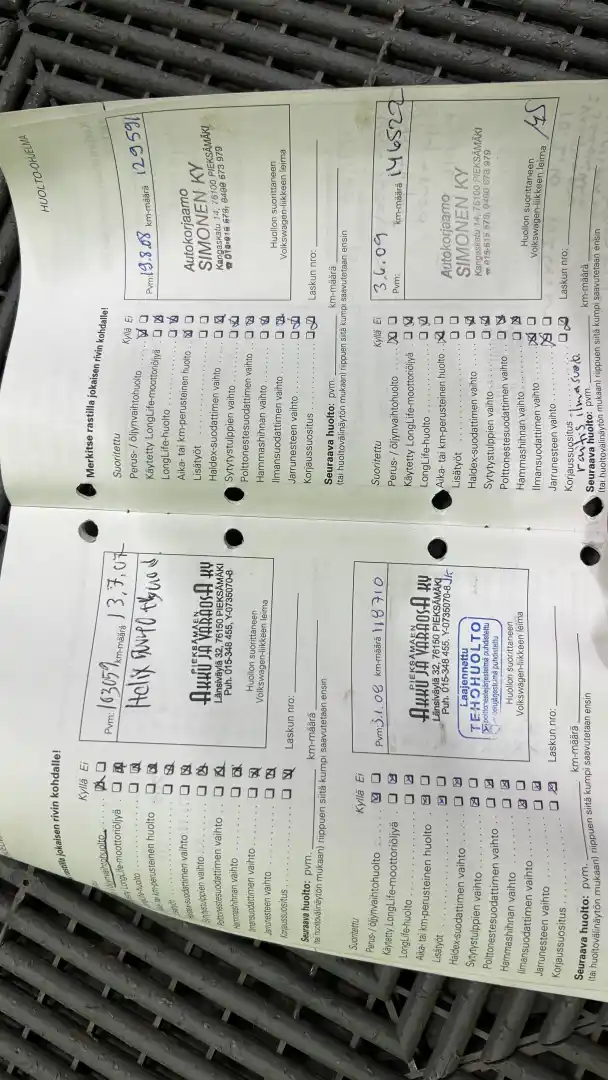 HUOLTO-OHJELMA
jokaisen rivin kohdalle!
Kyllä Ei
LongLife-moottoriöljyä
Hammashihnan vaihto
Ilmansuodattimen vaihto
Jarrunesteen vaihto
Korjaussuositus
Seuraava huolto: pvm.
km-määrä
(tai huoltovälinäytön mukaan) riippuen siitä kumpi saavutetaan ensin
Pvm: 163059 km-määrä 13,7,07
Helix
PIEKSÄMÄEN
AKKU JA VARAOSA KY
Länsiväylä 32, 76150 PIEKSÄMÄKI
Puh. 015-348 455, Y-0735070-8
Huollon suorittaneen
Volkswagen-liikkeen leima
Laskun nro:
Suoritettu
Kyllä Ei
Perus- / öljynvaihtohuolto
Käytetty LongLife-moottoriöljyä
LongLife-huolto
Aika- tai km-perusteinen huolto
Lisätyöt
Haldex-suodattimen vaihto
Sytytystulppien vaihto
Polttonestesuodattimen vaihto
Hammashihnan vaihto
Ilmansuodattimen vaihto
Jarrunesteen vaihto
Korjaussuositus
Seuraava huolto: pvm.
km-määrä
(tai huoltovälinäytön mukaan) riippuen siitä kumpi saavutetaan ensin
Pvm: 3.1.08 km-määrä 118710
PIEKSÄMÄEN
AKKU JA VARAOSA KY
Länsiväylä 32, 76150 PIEKSÄMÄKI
Puh. 015-348 455, Y-0735070-8
Laajennettu
TEHOHUOLTO
Huollon suorittaneen
Volkswagen-liikkeen leima
Laskun nro:
Merkitse rastilla jokaisen rivin kohdalle!
Suoritettu
Kyllä Ei
Perus- / öljynvaihtohuolto
Käytetty LongLife-moottoriöljyä
LongLife-huolto
Aika- tai km-perusteinen huolto
Lisätyöt
Haldex-suodattimen vaihto
Sytytystulppien vaihto
Polttonestesuodattimen vaihto
Hammashihnan vaihto
Ilmansuodattimen vaihto
Jarrunesteen vaihto
Korjaussuositus
Seuraava huolto: pvm.
km-määrä
(tai huoltovälinäytön mukaan) riippuen siitä kumpi saavutetaan ensin
Pvm: 19.8.08 km-määrä 129591
Autokorjaamo
SIMONEN KY
Kangaskatu 14, 76100 PIEKSÄMÄKI
Huollon suorittaneen
Volkswagen-liikkeen leima
Laskun nro:
Suoritettu
Kyllä Ei
Perus- / öljynvaihtohuolto
Käytetty LongLife-moottoriöljyä
LongLife-huolto
Aika- tai km-perusteinen huolto
Lisätyöt
Haldex-suodattimen vaihto
Sytytystulppien vaihto
Polttonestesuodattimen vaihto
Hammashihnan vaihto
Ilmansuodattimen vaihto
Jarrunesteen vaihto
Korjaussuositus
raitis ilmasuod.
Seuraava huolto: pvm.
km-määrä
(tai huoltovälinäytön mukaan) riippuen siitä kumpi saavutetaan ensin
3.6.09
Pvm: km-määrä 146522
Autokorjaamo
SIMONEN KY
Kangaskatu 14, 76100 PIEKSÄMÄKI
Huollon suorittaneen
Volkswagen-liikkeen leima
Laskun nro: